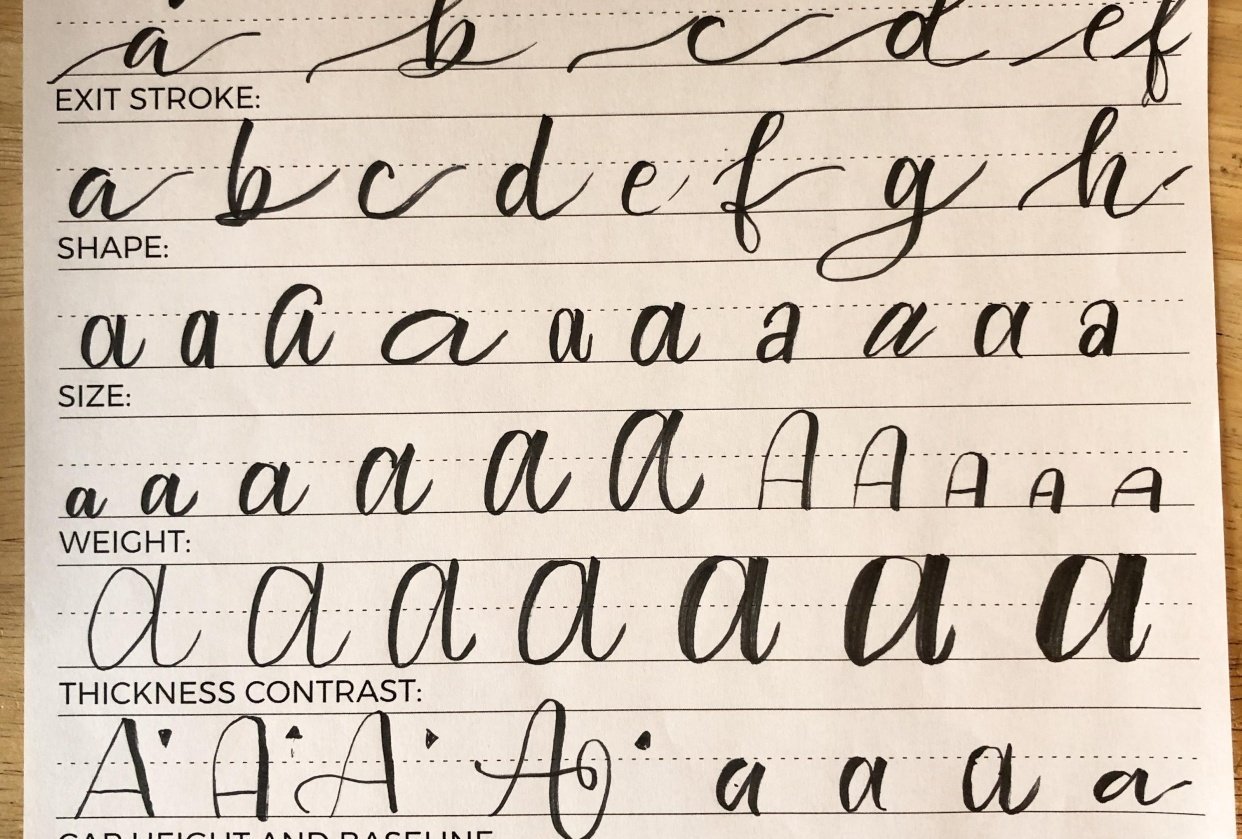 a b c d e f
EXIT STROKE:
a b c d e f g h
SHAPE:
a a a a a a a a a a
SIZE:
a a a a a a A A A A A
WEIGHT:
a a a a a a a
THICKNESS CONTRAST:
A A A A a a a a
CAP HEIGHT AND BASELINE